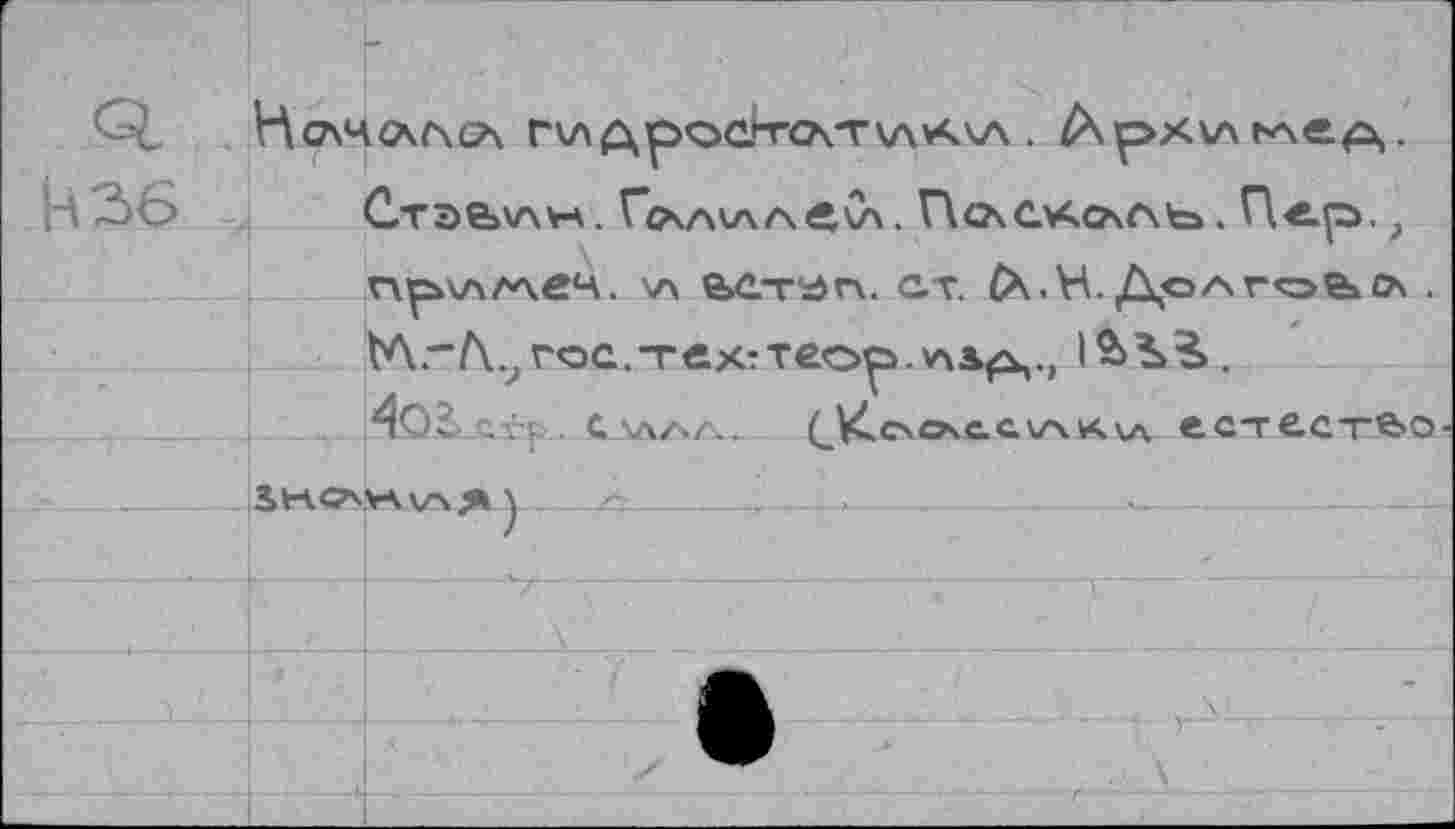 Q Начала гидростатики. Архимед.
Н36 Стэвин. Галилей. Паскаль. Пер.,
примеч. и вступ. ст. А.Н. Долгова.
М.-Л., гос. тех.-теор. изд., 1933.
403 стр. с илл. (Классики естество-
знания)